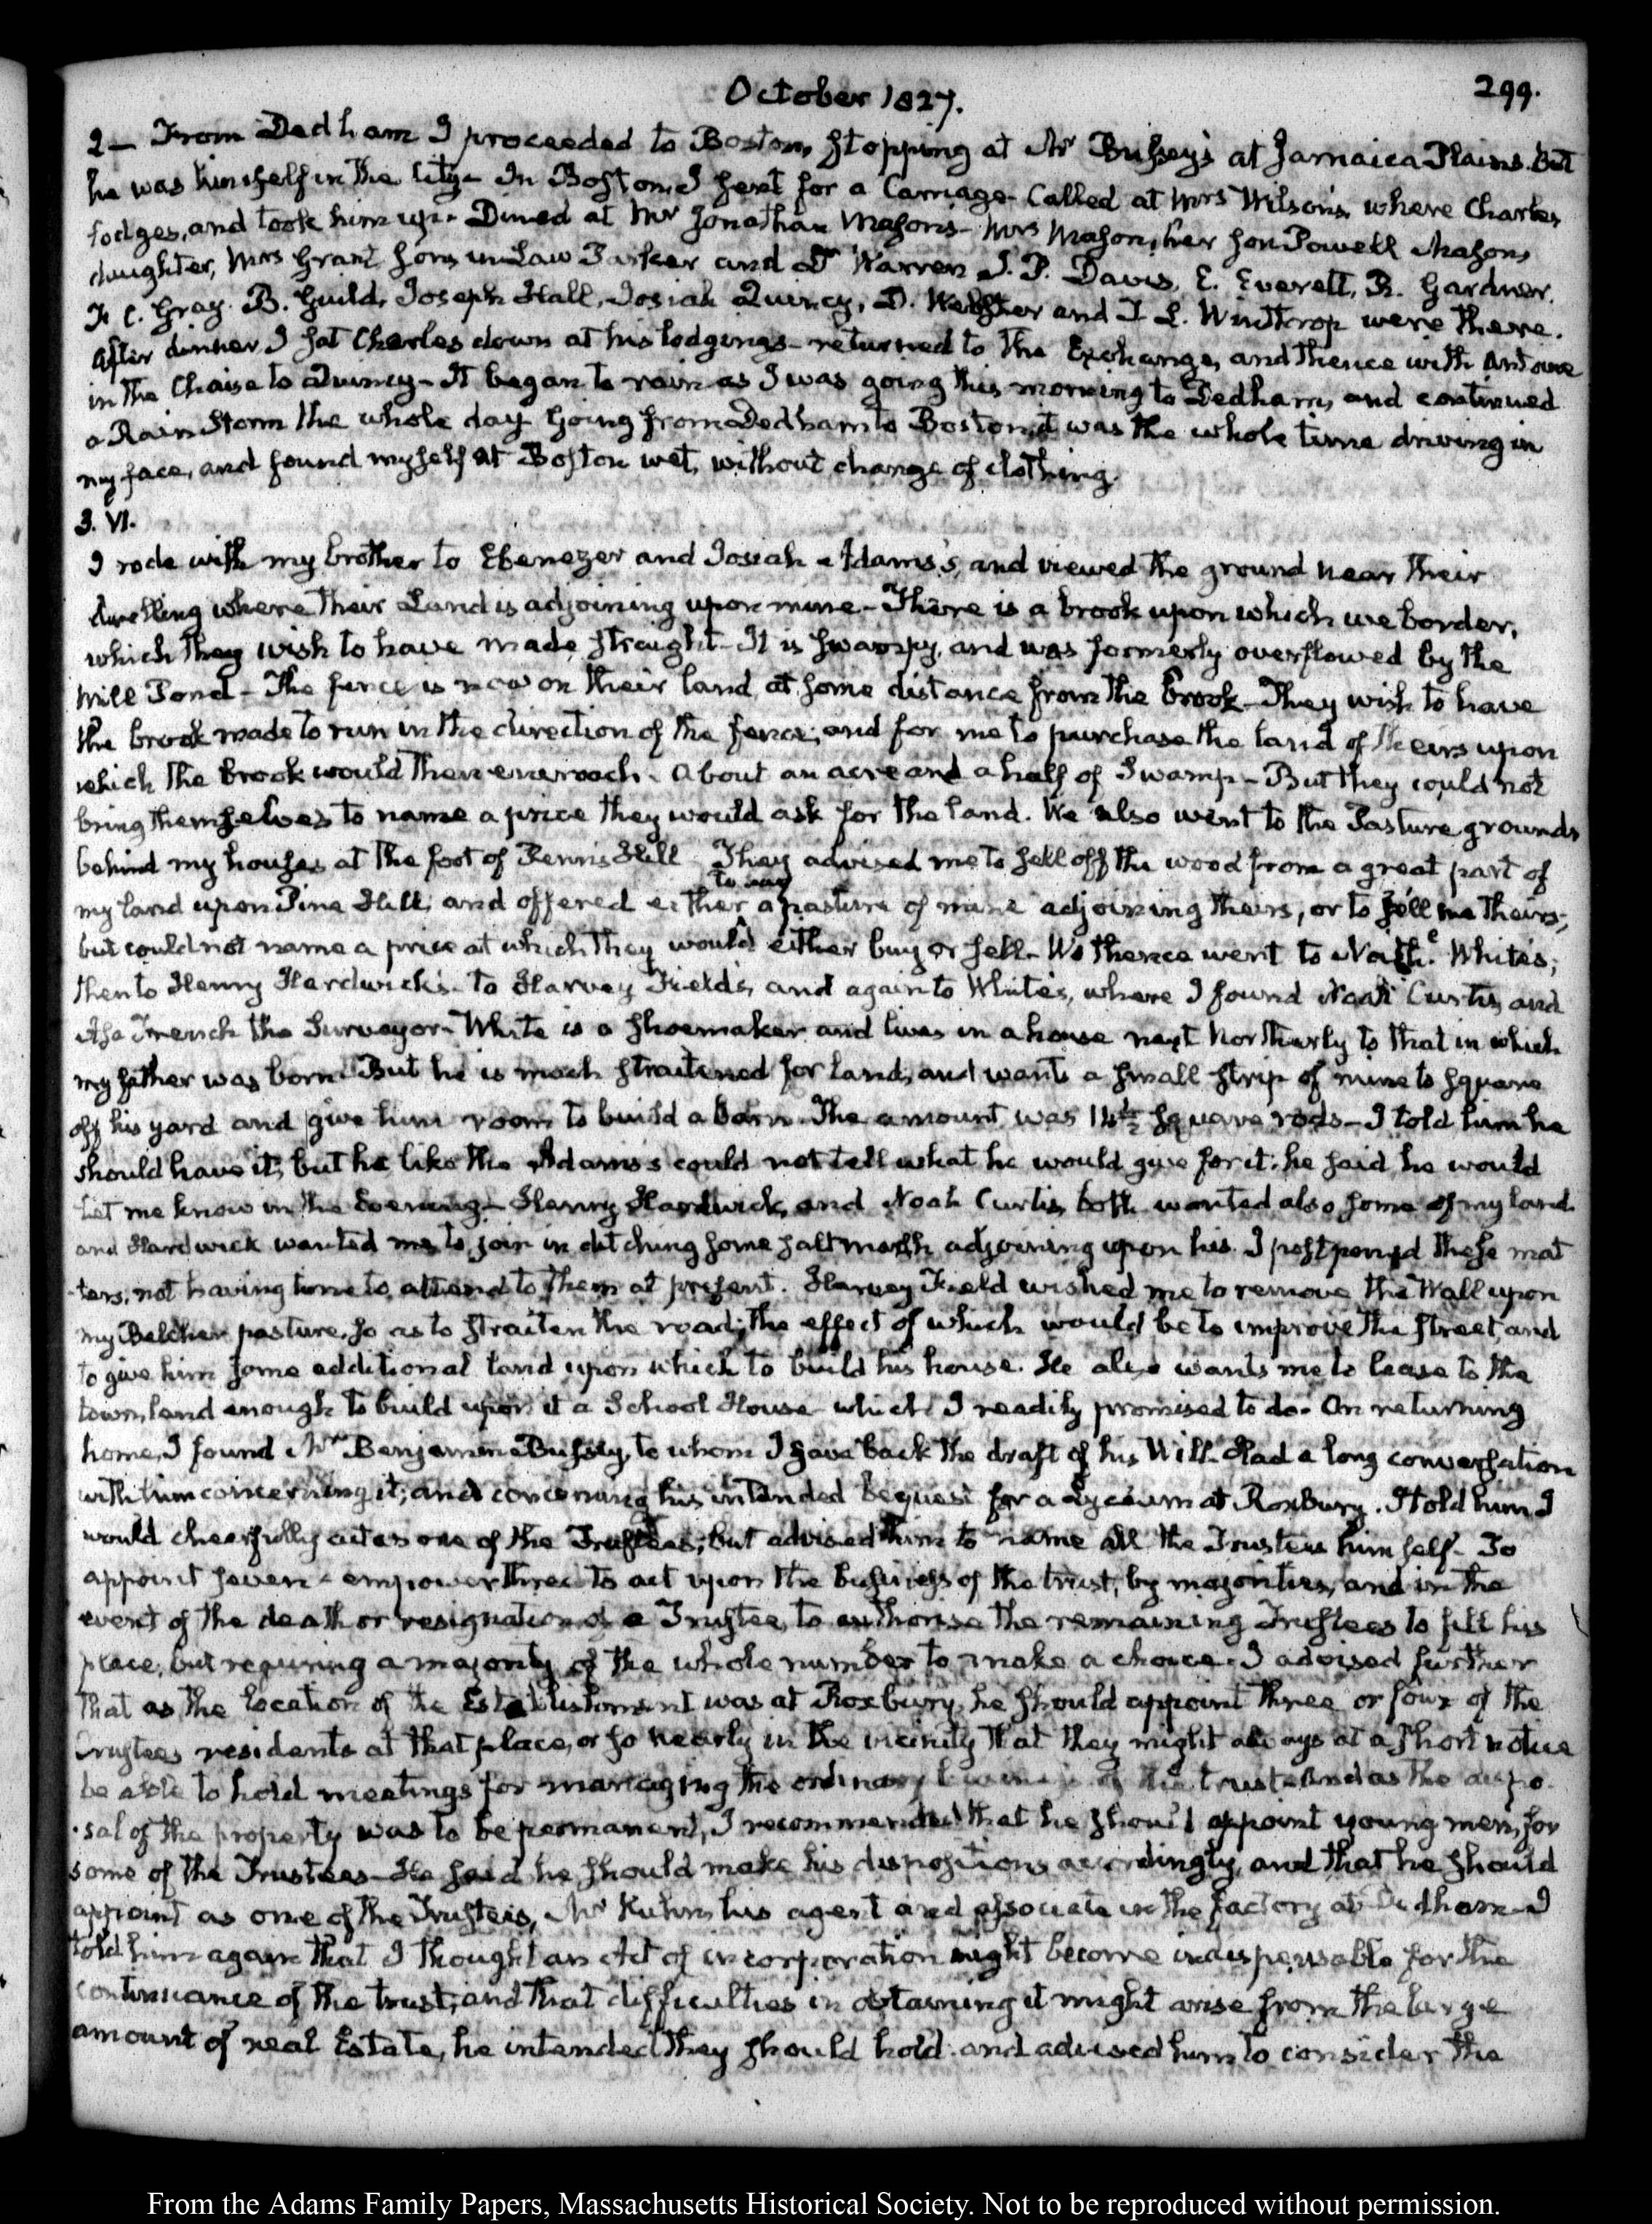 October 1827.
299.
2— From Dedham I proceeded to Boston, stopping at Mr Bussey's at Jamaica Plains. But
he was himself in the City— In Boston I sent for a Carriage— Called at Mrs Wilson's, where Charles
lodges, and took him up— Dined at Mr Jonathan Mason's— Mrs Mason, her son Powell Mason,
daughter, Mrs Grant, Son in Law Parker and Dr Warren J. P. Davis, E. Everett, R. Gardner.
F. C. Gray. B. Guild, Joseph Hall, Josiah Quincy, D. Webster and T L. Winthrop were there.
After dinner I sat Charles down at his lodgings— returned to the Exchange, and thence with Antoine
in the Chaise to Quincy— It began to rain as I was going this morning to Dedham, and continued
a Rain Storm the whole day. Going from Dedham to Boston it was the whole time driving in
my face, and found myself at Boston wet, without change of clothing.
3. VI.
I rode with my brother to Ebenezer and Josiah Adams's, and viewed the ground near their
dwelling where their Land is adjoining upon mine— There is a brook upon which we border,
which they wish to have made straight— It is swampy, and was formerly overflowed by the
Mill Pond— The fence is now on their land, at some distance from the brook— They wish to have
the brook made to run in the direction of the fence; and for me to purchase the land of theirs upon
which the brook would then encroach. About an acre and a half of Swamp— But they could not
bring themselves to name a price they would ask for the land. We also went to the Pasture grounds
behind my houses at the foot of Penn's Hill They advised me to sell off the wood from a great part of
my land upon Pine Hill; and offered either to buy a pasture of mine adjoining theirs, or to sell me theirs;
but could not name a price at which they would either buy or sell— We thence went to Nathl. White's;
then to Henry Hardwick's— to Harvey Field's, and again to White's, where I found Noah Curtis, and
Asa French the Surveyor— White is a Shoemaker and lives in a house next Northerly to that in which
my father was born. But he is much straitened for land, and wants a small strip of mine to square
off his yard and give him room to build a barn. The amount was 14½ square rods— I told him he
should have it, but he like the Adams's could not tell what he would give for it: he said he would
let me know in the Evening— Henry Hardwick, and Noah Curtis, both wanted also some of my land.
and Hardwick wanted me to join in ditching some salt marsh adjoining upon his. I postponed these mat
-ters; not having time to attend to them at present. Harvey Field wished me to remove the Wall upon
my Belcher pasture, so as to straiten the road; the effect of which would be to improve the street, and
to give him some additional land upon which to build his house. He also wants me to lease to the
town, land enough to build upon it a School House which I readily promised to do— On returning
home, I found Mr Benjamin Bussey, to whom I gave back the draft of his Will— Had a long conversation
with him concerning it; and concerning his intended bequest for a Lyceum at Roxbury. I told him I
would cheerfully act as one of the Trustees; but advised him to name all the Trustees himself— To
appoint seven— empower three to act upon the business of the trust, by majorities, and in the
event of the death or resignation of a Trustee, to authorise the remaining Trustees to fill his
place, but requiring a majority of the whole number to make a choice. I advised further
that as the location of the Establishment was at Roxbury, he should appoint three or four of the
Trustees residents at that place, or so nearly in the vicinity that they might always at a short notice
be able to hold meetings for managing the ordinary business of the trust— And as the dispo
-sal of the property was to be permanent, I recommended that he should appoint young men, for
some of the Trustees— He said he should make his dispositions accordingly, and that he should
appoint as one of the Trustees, Mr Kuhn, his agent and associate in the factory at Dedham— I
told him again that I thought an Act of incorporation might become indispensable for the
continuance of the trust; and that difficulties in obtaining it might arise from the large
amount of real Estate, he intended they should hold: and advised him to consider the
From the Adams Family Papers, Massachusetts Historical Society. Not to be reproduced without permission.